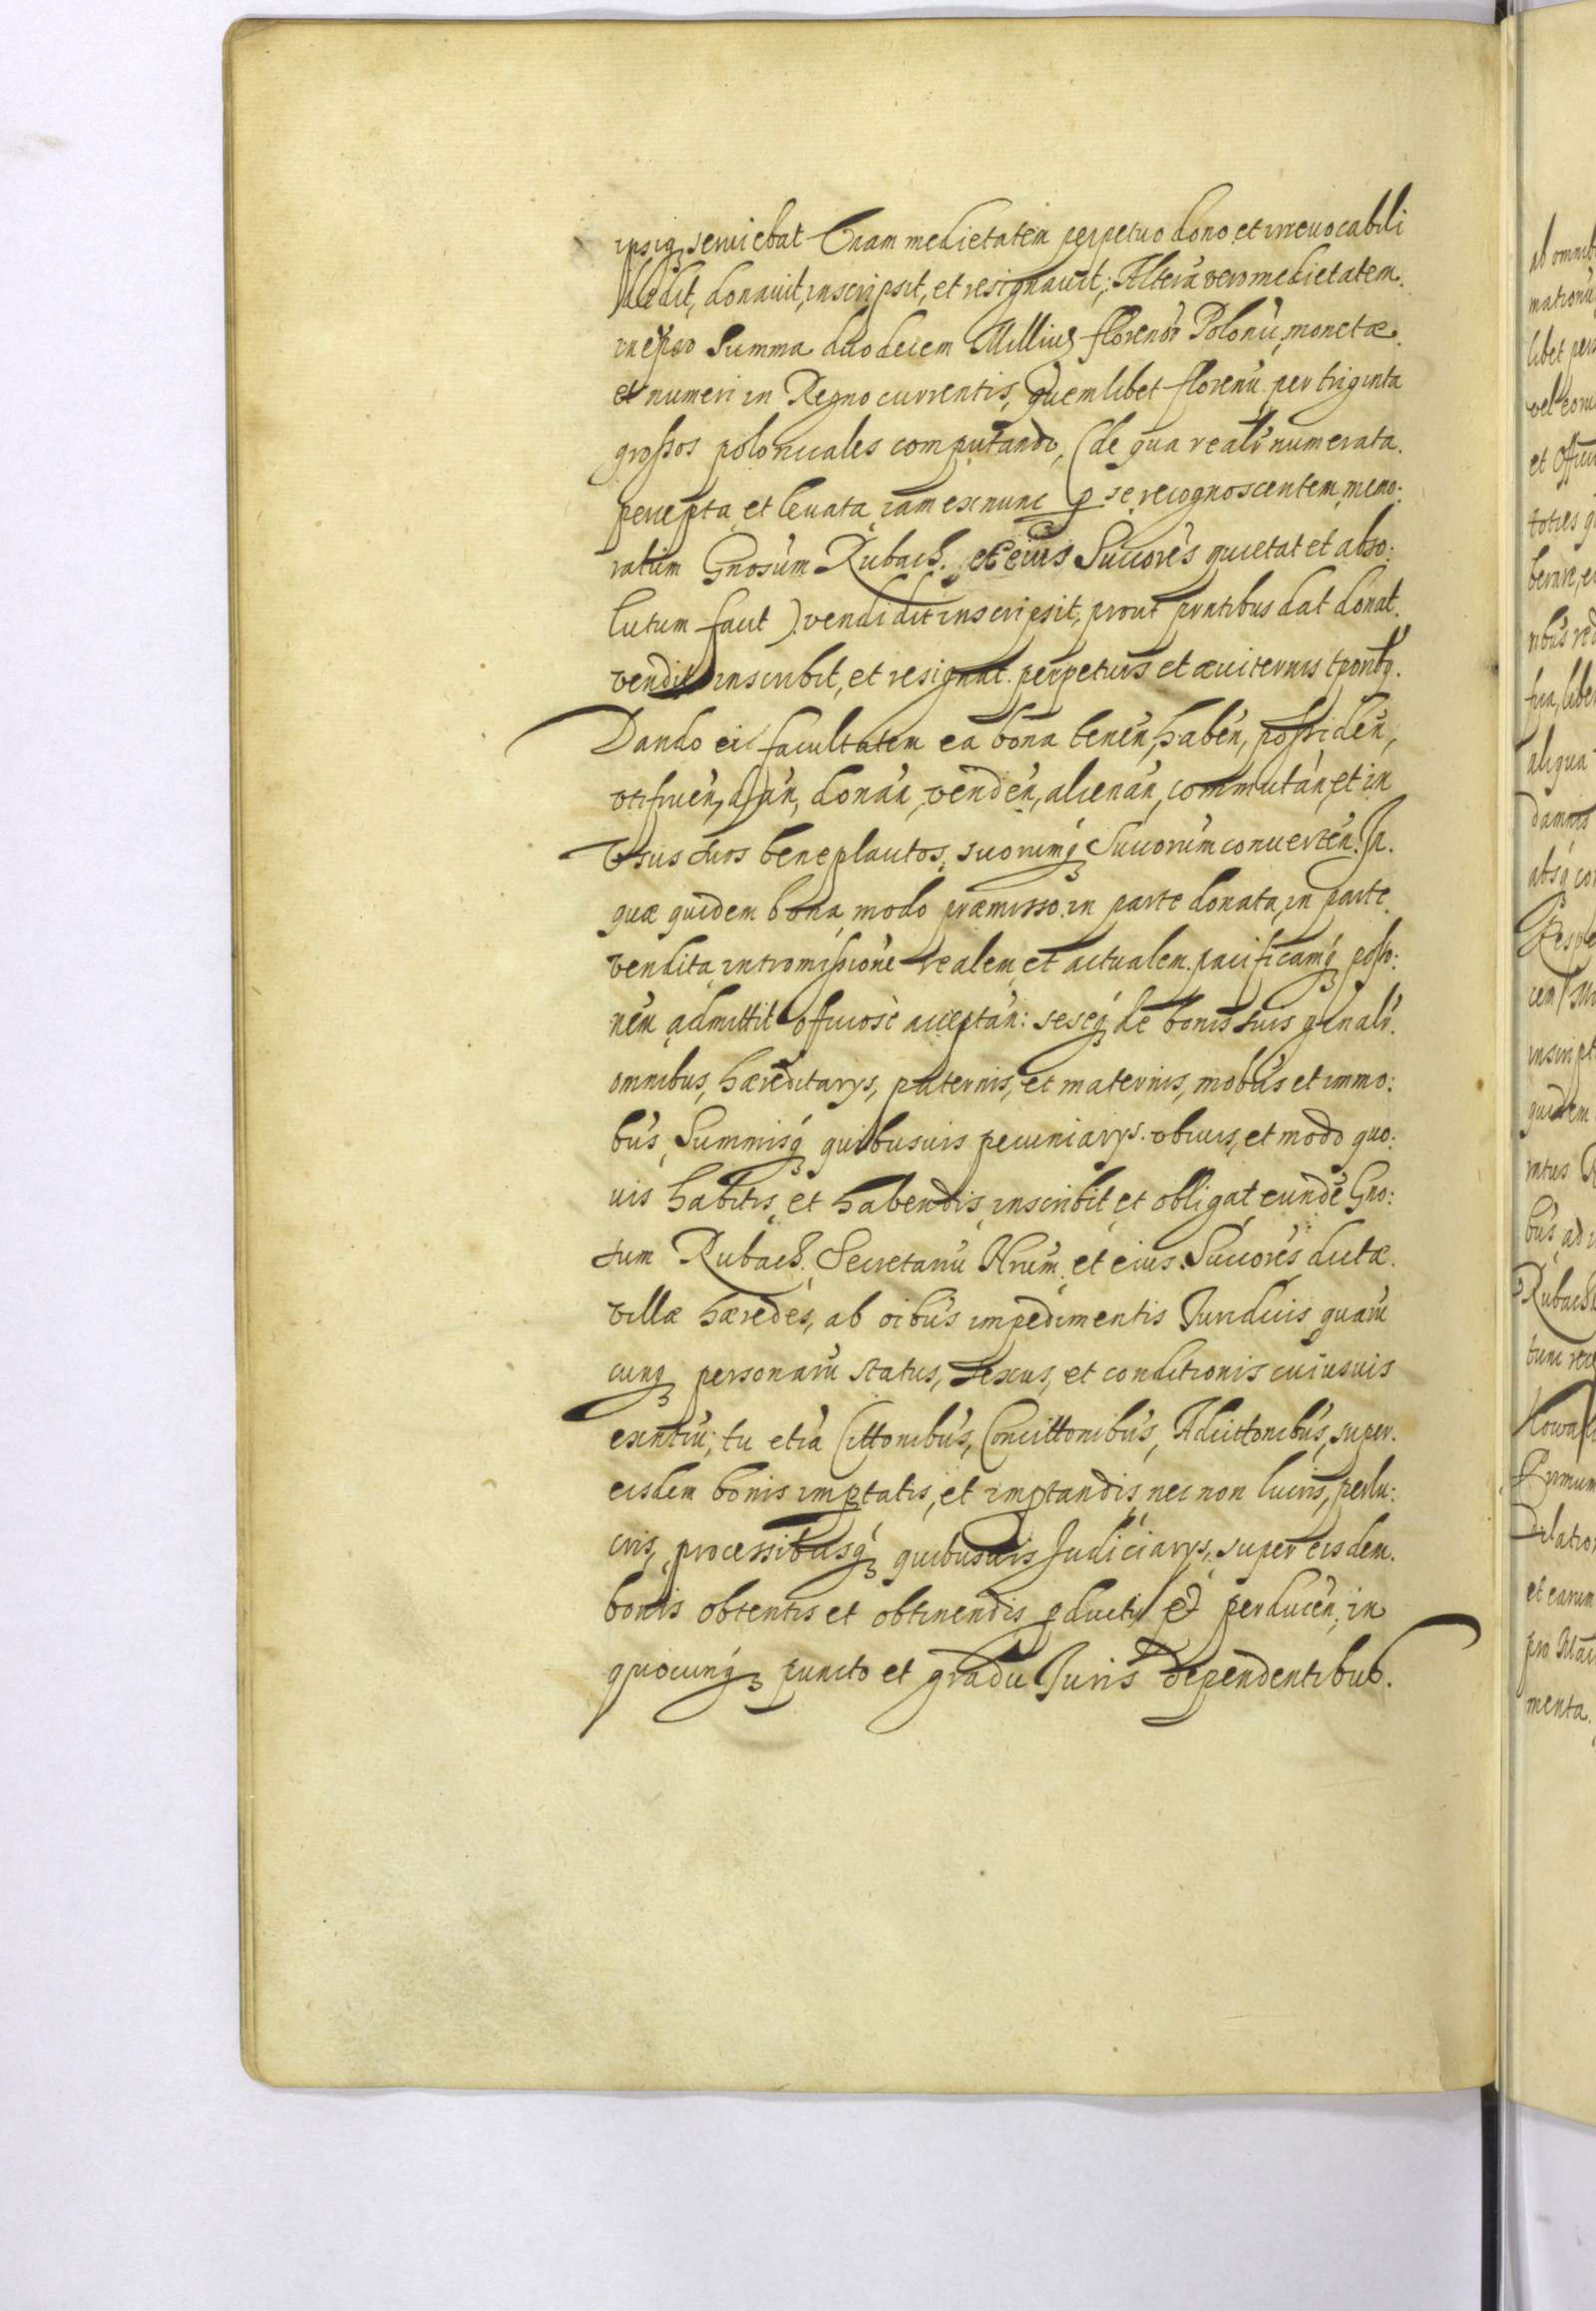 ipsiq₃ seruiebat Vnam medietatem perpetuo dono et irreuocabili
dedit, donauit, inscripsit, et resignauit; Alterã vero medietatem
pro Summa duodecem Milliũ florenor̃ Polonũ, monetæ
et numeri in Regno currentis, quemlibet florenũ per triginta
grossos polonicales computando, (de qua realr̃ numerata
percepta et leuata iam ex nunc p se recognoscentem, memo:
ratum Gnosũm Rubach. et eius Succorẽs quietat et abso:
lutum facit) vendidit inscripsit, prout prntibus dat donat
vendit inscribit, et resignat perpetuis et æuiternis tporibq.
Dando ei facultatem ea bona tenẽn, habẽn, possidẽn,
vtifruẽn, dãn, donãn, vendẽn, alienãn, commutãn, et in
Vsus suos beneplacitos, suorumq₃ Succorũm conuertẽn. In
quæ quidem bona modo præmisso in parte donata, in parte
vendita intromissionẽ realem et actualem pacificamq₃ posso:
nẽm admittit officiosè acceptãn: seseq₃ de bonis suis gñnalr̃
omnibus, hæreditarys, paternis, et maternis, mobũs et immo:
bũs, Summisq₃ quibusuis pecuniarys obiuis, et modo quo:
uis habitis et habendis inscribit et obligat eundẽ Gno:
sum Rubach. Secretariũ Nrũm et eius Succorẽs dictæ
villæ hæredes, ab oibũs impedimentis Juridicis quarũ
cunq₃ personarũ status, sexus, et conditionis cuiusuis
exñtiũ; tũ etiã Cittonibũs, Concittonibũs, Adcittonibũs, super
eisdem bonis imptatis, et imptandis nec non lucris, perlu:
cris, processibusq₃ quibusuis Judiciarys, super eisdem
bonis obtentis et obtinendis pductis et perducẽn, in
quocunq₃ puncto et gradu Juris dependentibus.
ab omnib
matioñu
libet pers
et Offici
toties q
berare, e
ribũs red
aliqua
damnis
absq₃ co
inscript
quidem
ratus R
bũs ad
Rubach
Kowal
Primum
Dilatio
et earum
menta.